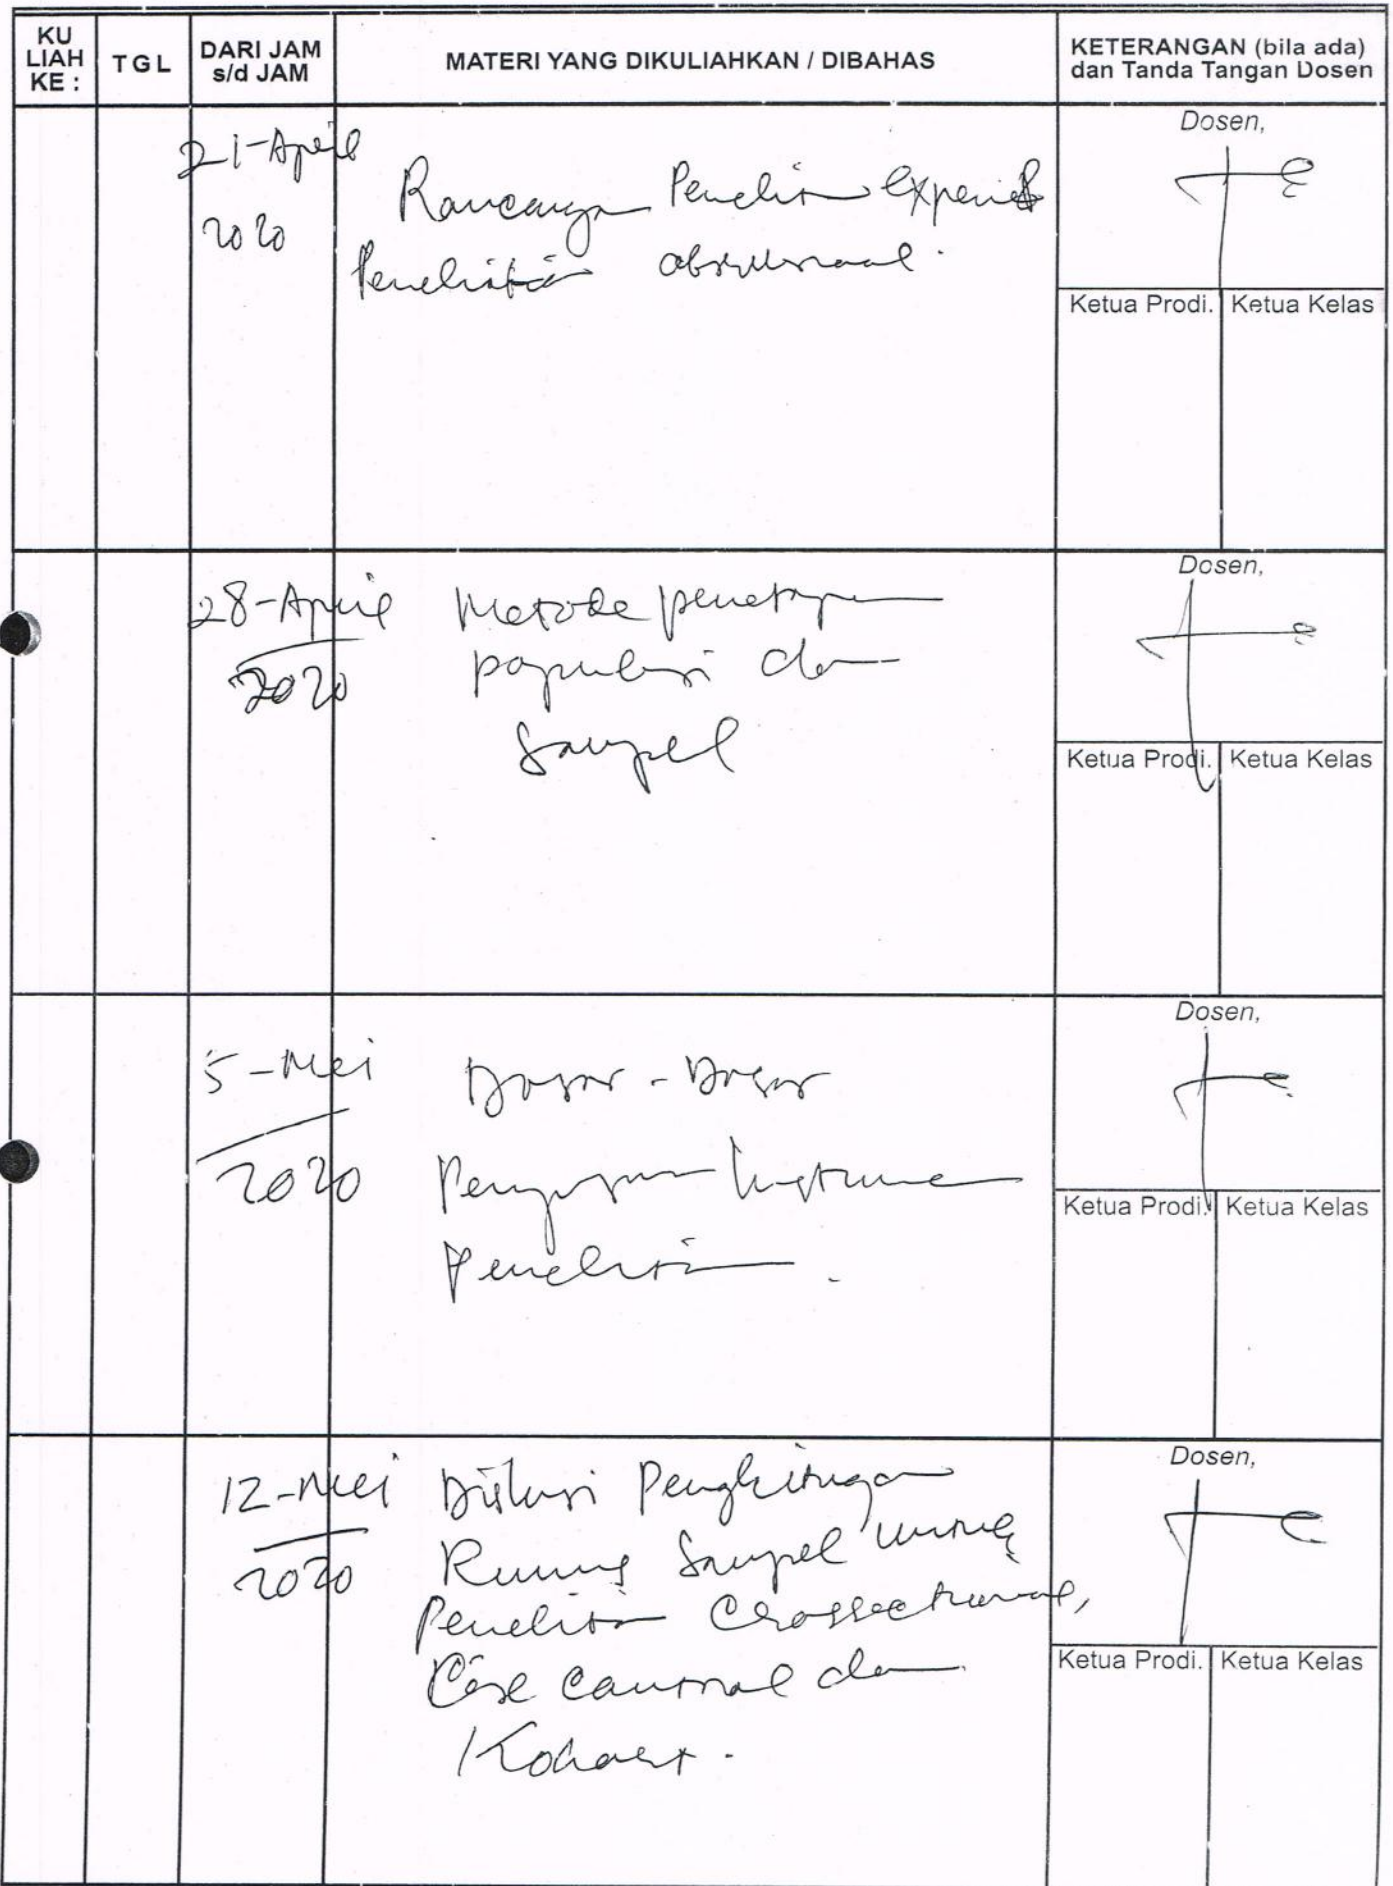 KU
LIAH
KE :
TGL
DARI JAM
s/d JAM
MATERI YANG DIKULIAHKAN / DIBAHAS
KETERANGAN (bila ada)
dan Tanda Tangan Dosen
21-April
2020
Rancangan Penelitian
Penelitian observasional.
Dosen,
Ketua Prodi. Ketua Kelas
28-April
2020
Metode penetapan
populasi dan
Sampel
Dosen,
Ketua Prodi. Ketua Kelas
5-Mei
2020
Dasar-Dasar
Penyusunan Instrumen
Penelitian.
Dosen,
Ketua Prodi. Ketua Kelas
12-Mei
2020
Diskusi Penghitungan
Rumus Sampel untuk
Penelitian Crossectional,
Case control dan
Kohort.
Dosen,
Ketua Prodi. Ketua Kelas